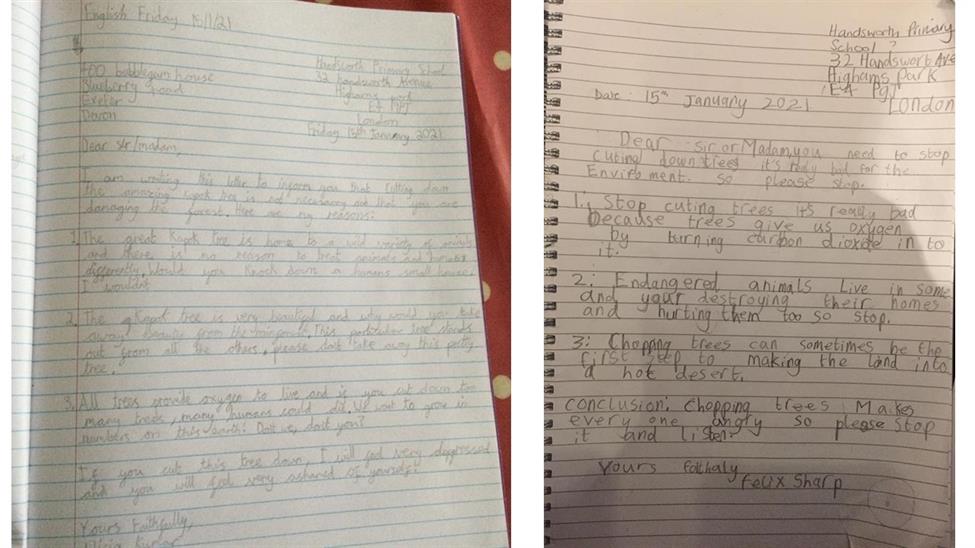 English Friday 15/1/21
Handsworth Primary School
32 handsworth Avenue
Highams park
E4 9PJ
London
Friday 15th January 2021
400 bubblegum house
Blueberry road
Exeter
Devon
Dear sir/madam,
I am writing this letter to inform you that cutting down
the amazing Kapok tree is not necessary and that you are
damaging the forest. Here are my reasons:
1. The great Kapok tree is home to a wild variety of animals
and there is no reason to treat animals and humans
differently. Would you knock down a humans small house.
I wouldn't
2. The Kapok tree is very beautiful and why would you take
away beauty from the rainforest. This particular tree stands
out from all the others. please don't take away this pretty
tree.
3. All trees provide oxygen to live and if you cut down too
many trees, many humans could die. We want to grow in
numbers on this earth! Don't we, don't you?
If you cut this tree down, I will feel very depressed
and you will feel very ashared of yourself!
Yours Faithfully,
Kumar
Handsworth Primary
School
32 Handswort Ave
Highams Park
E4 9PJ
LONDON
Date: 15th January 2021
Dear sir or Madam, you need to stop
cuting down trees it's really bad for the
Enviroment. so please stop.
1: Stop cuting trees it's really bad
because trees give us oxygen
by turning carbon dioxide in to
it.
2: Endangered animals live in some
and your destroying their homes
and hurting them too so stop.
3: Chopping trees can sometimes be the
first step to making the land into
a hot desert.
conclusion: Chopping trees Makes
every one angry so please stop
it and listen.
Yours faithaly
Felix Sharp